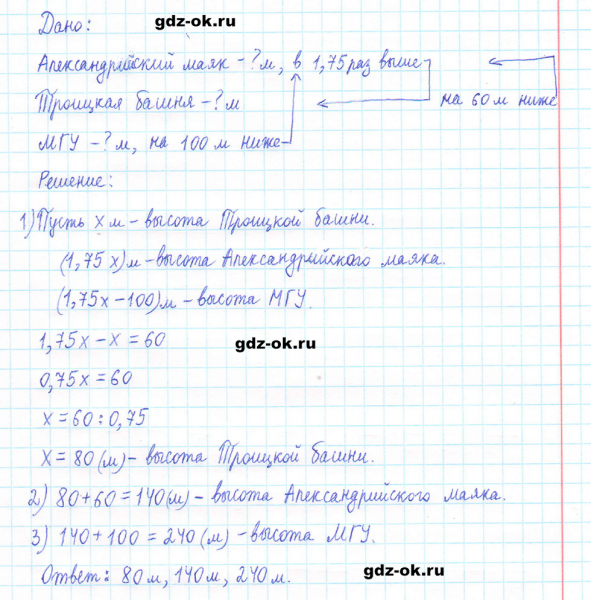 Дано: gdz-ok.ru
Александрийский маяк - ? м, в 1,75 раз выше
Троицкая башня - ? м на 60 м ниже
МГУ - ? м, на 100 м ниже
Решение:
1) Пусть х м - высота Троицкой башни.
(1,75 х) м - высота Александрийского маяка.
(1,75х - 100) м - высота МГУ.
1,75х - х = 60
gdz-ok.ru
0,75х = 60
х = 60 : 0,75
х = 80 (м) - высота Троицкой башни.
2) 80 + 60 = 140 (м) - высота Александрийского маяка.
3) 140 + 100 = 240 (м) - высота МГУ.
Ответ: 80 м, 140 м, 240 м.
gdz-ok.ru